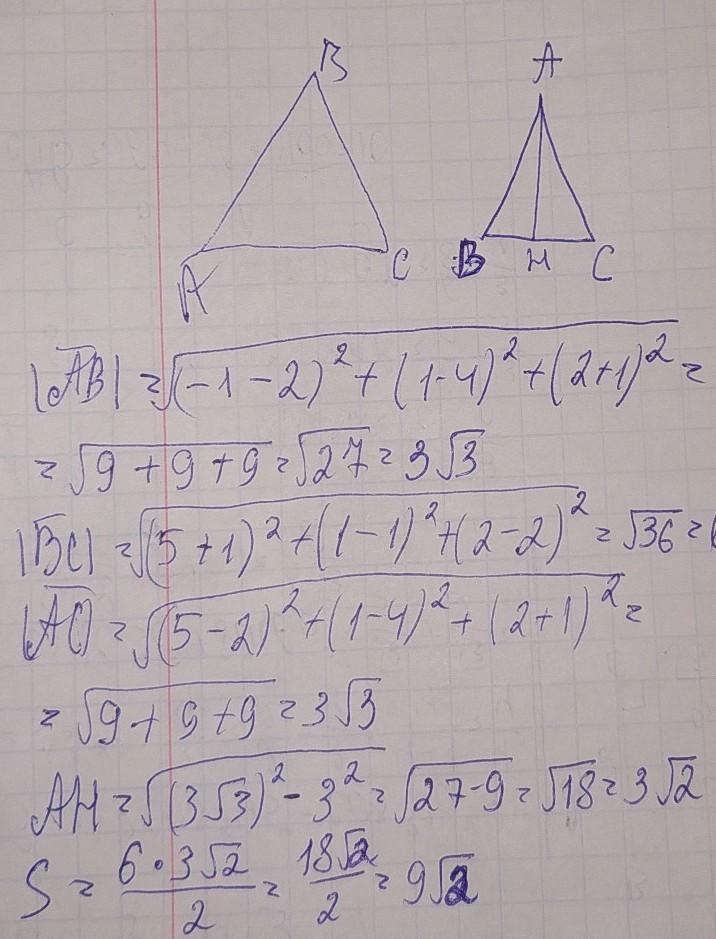 B A
A C B H C
|A̅B̅| = √((-1-2)² + (1-4)² + (2+1)²) =
= √(9+9+9) = √27 = 3√3
|B̅C̅| = √((5+1)² + (1-1)² + (2-2)²) = √36 =
|A̅C̅| = √((5-2)² + (1-4)² + (2+1)²) =
= √(9+9+9) = 3√3
AH = √((3√3)² - 3²) = √(27-9) = √18 = 3√2
S = (6·3√2)/2 = (18√2)/2 = 9√2